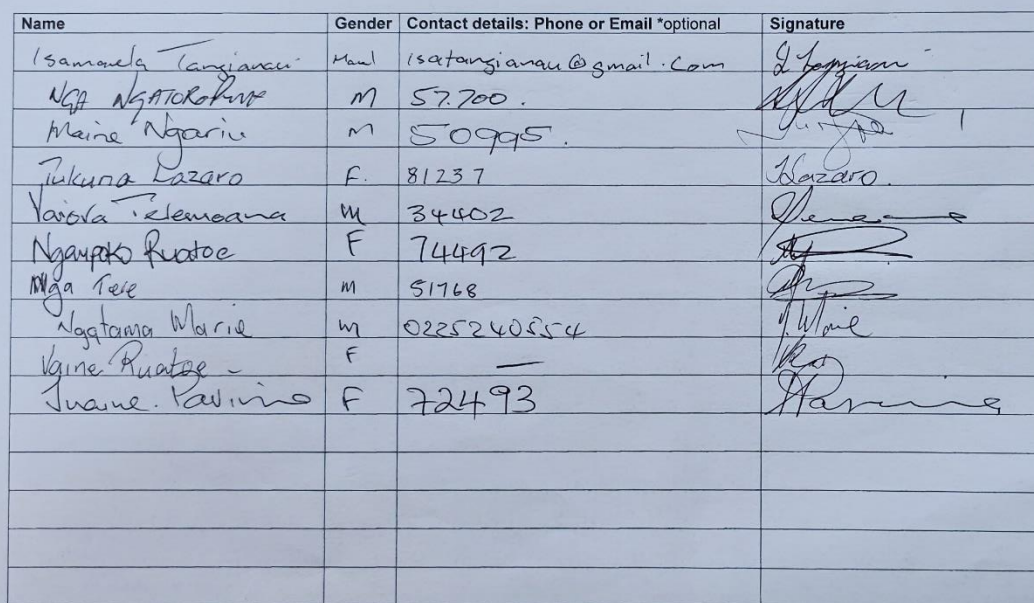 Name Gender Contact details: Phone or Email *optional Signature
Isamaela Tangianau Maul isatangianau@gmail.com
NGA M 57.700.
Maine Ngariu M 50995.
Tukuna Lazaro F. 81237 Lazaro.
Vaiova Telemoana M 34402
Ngaupoko Ruatoe F 74492
Nga Tere M 51768
Ngatama Marie M 0225240554
Vaine Ruatoe - F —
F 72493